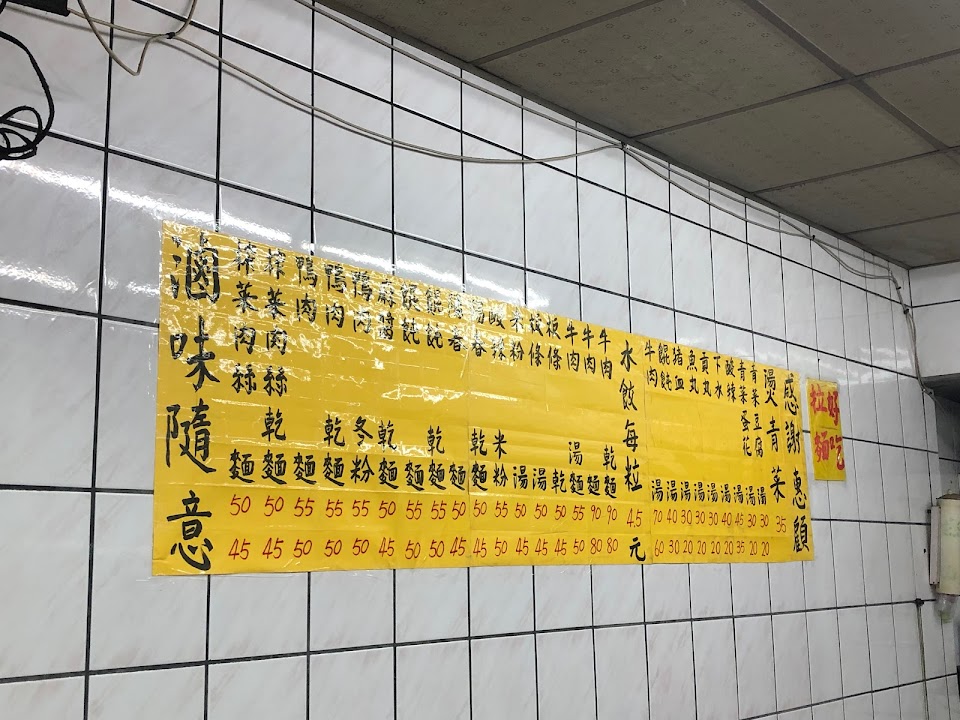 好吃
拉麵
感謝惠顧
燙青菜 35
青菜豆腐湯 30 20
青菜蛋花湯 30 20
酸辣湯 45 35
下水湯 40 20
貢丸湯 30 20
魚丸湯 30 20
豬血湯 30 20
餛飩湯 40 30
牛肉湯 70 60
水餃每粒4.5元
牛肉乾麵 90 80
牛肉麵 90 80
牛肉湯麵 55 50
板條乾 50 45
板條湯 50 45
米粉湯 50 45
酸辣米粉 55 50
陽春乾麵 50 45
陽春麵 50 45
餛飩乾麵 55 50
餛飩麵 55 50
麻醬乾麵 50 45
鴨肉冬粉 55 50
鴨肉乾麵 55 50
鴨肉麵 55 50
榨菜肉絲乾麵 50 45
榨菜肉絲麵 50 45
滷味隨意